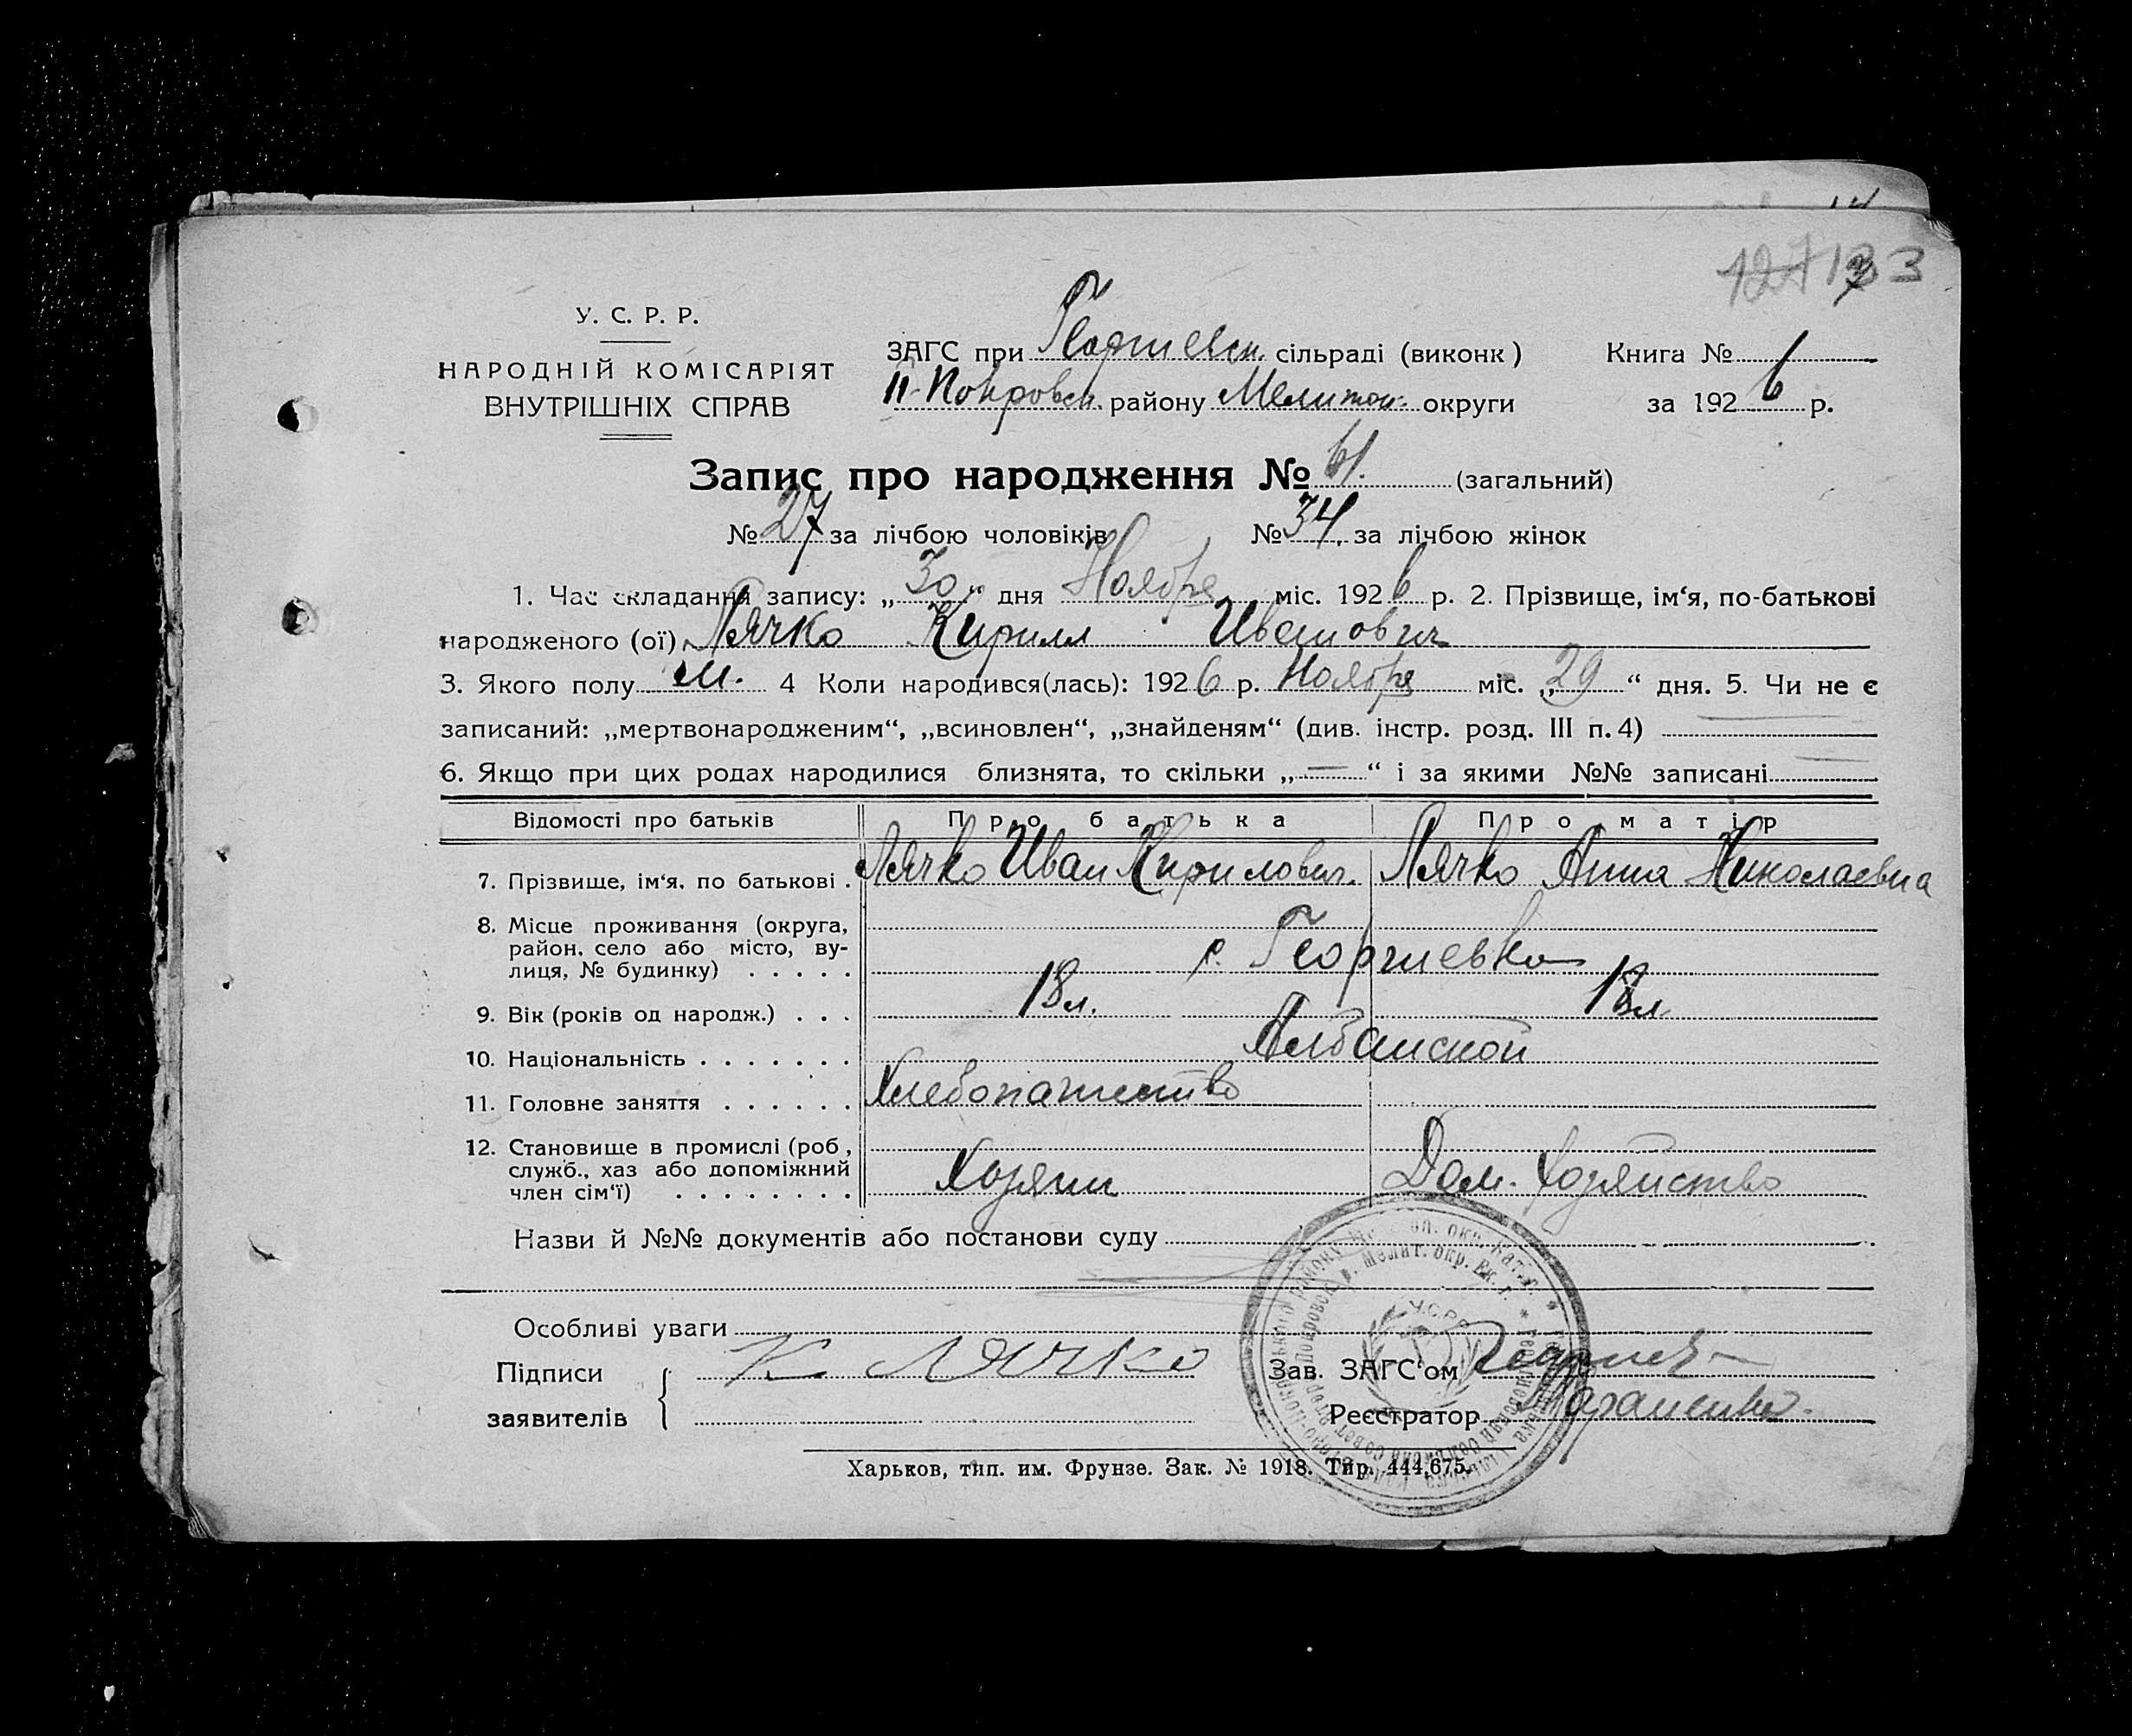 127 133
У. С. Р. Р.
НАРОДНІЙ КОМІСАРІЯТ
ВНУТРІШНІХ СПРАВ
ЗАГС при Георгиевск. сільраді (виконк)
Книга №
Н-Покровск. району Мелитоп. округи
за 1926 р.
Запис про народження № 61. (загальний)
№ 27 за лічбою чоловіків № 34. за лічбою жінок
1. Час складання запису: „30" дня Ноября міс. 1926 р. 2. Прізвище, ім‘я, по-батькові
народженого (ої) Лячко Кирилл Иванович
3. Якого полу м. 4 Коли народився(лась): 1926 р. Ноября міс. „29“ дня. 5. Чи не є
записаний: „мертвонародженим“, „всиновлен“, „знайденям“ (див. інстр. розд. III п. 4)
6. Якщо при цих родах народилися близнята, то скільки „—“ і за якими №№ записані
Відомості про батьків Про батька Про матір
7. Прізвище, ім‘я, по батькові . Лячко Иван Кирилович. Лячко Анна Николаевна
8. Місце проживання (округа,
район, село або місто, ву-
лиця, № будинку) . . . . . с. Георгиевка
9. Вік (років од народж.) . . . 18 л. 18 л
10. Національність . . . . . . . Албанской
11. Головне заняття . . . . . . Хлебопашество
12. Становище в промислі (роб,
служб., хаз або допоміжний
член сім‘ї) . . . . . . . . Хозяин Дом. Хозяйство
Назви й №№ документів або постанови суду
Особливі уваги
Підписи
заявителів
К Лячко
Зав. ЗАГС‘ом
Реєстратор
Харьков, тип. им. Фрунзе. Зак. № 1918. Тир. 444.675.